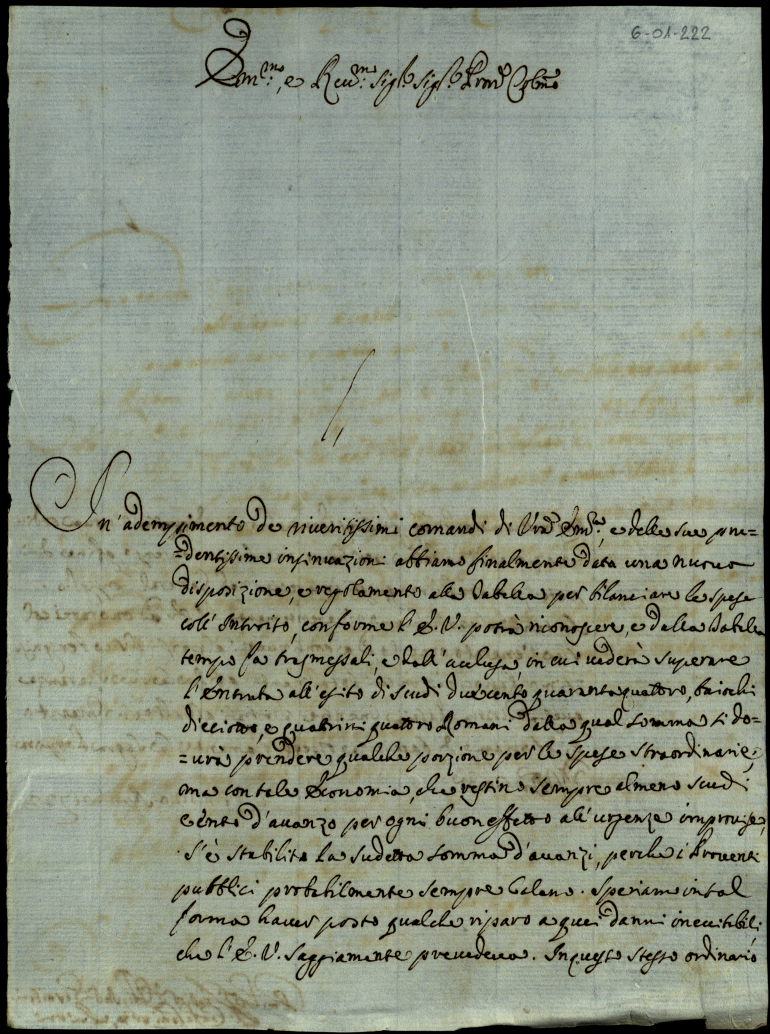 6-01-222
Em.mo, e Reu.mo Sig.r Sig.r Prõn Colmo
In' adempimento de riueritissimi comandi di Vrã Em.za, e delle sue pru=
=dentissime insinuazioni abbiamo finalmente data una nuoua
disposizione, e regolamento alla Tabella per bilanciare le spese
coll' Introito, conforme l' E. V. potrà riconoscere, e dalla Tabella
tempo fa trasmessali, e dall' acclusa, in cui uederà superare
l' Entrata all' esito di scudi duecento quarantaquattro, baiochi
dieciotto, e quatrini quattro Romani dalla qual somma si do=
=urà prendere qualche porzione per le spese straordinarie,
ma con tale Economia, che restino sempre almeno scudi
cento d' auanzo per ogni buon effetto all' urgenze improuise,
S' è stabilita la sudetta somma d' auanzi, perche i Prouenti
pubblici probabilmente sempre calano. Speriamo in tal
forma hauer posto qualche riparo a quei danni ineuitabili
che l' E. V. saggiamente preuedeua. In questo stesso ordinario